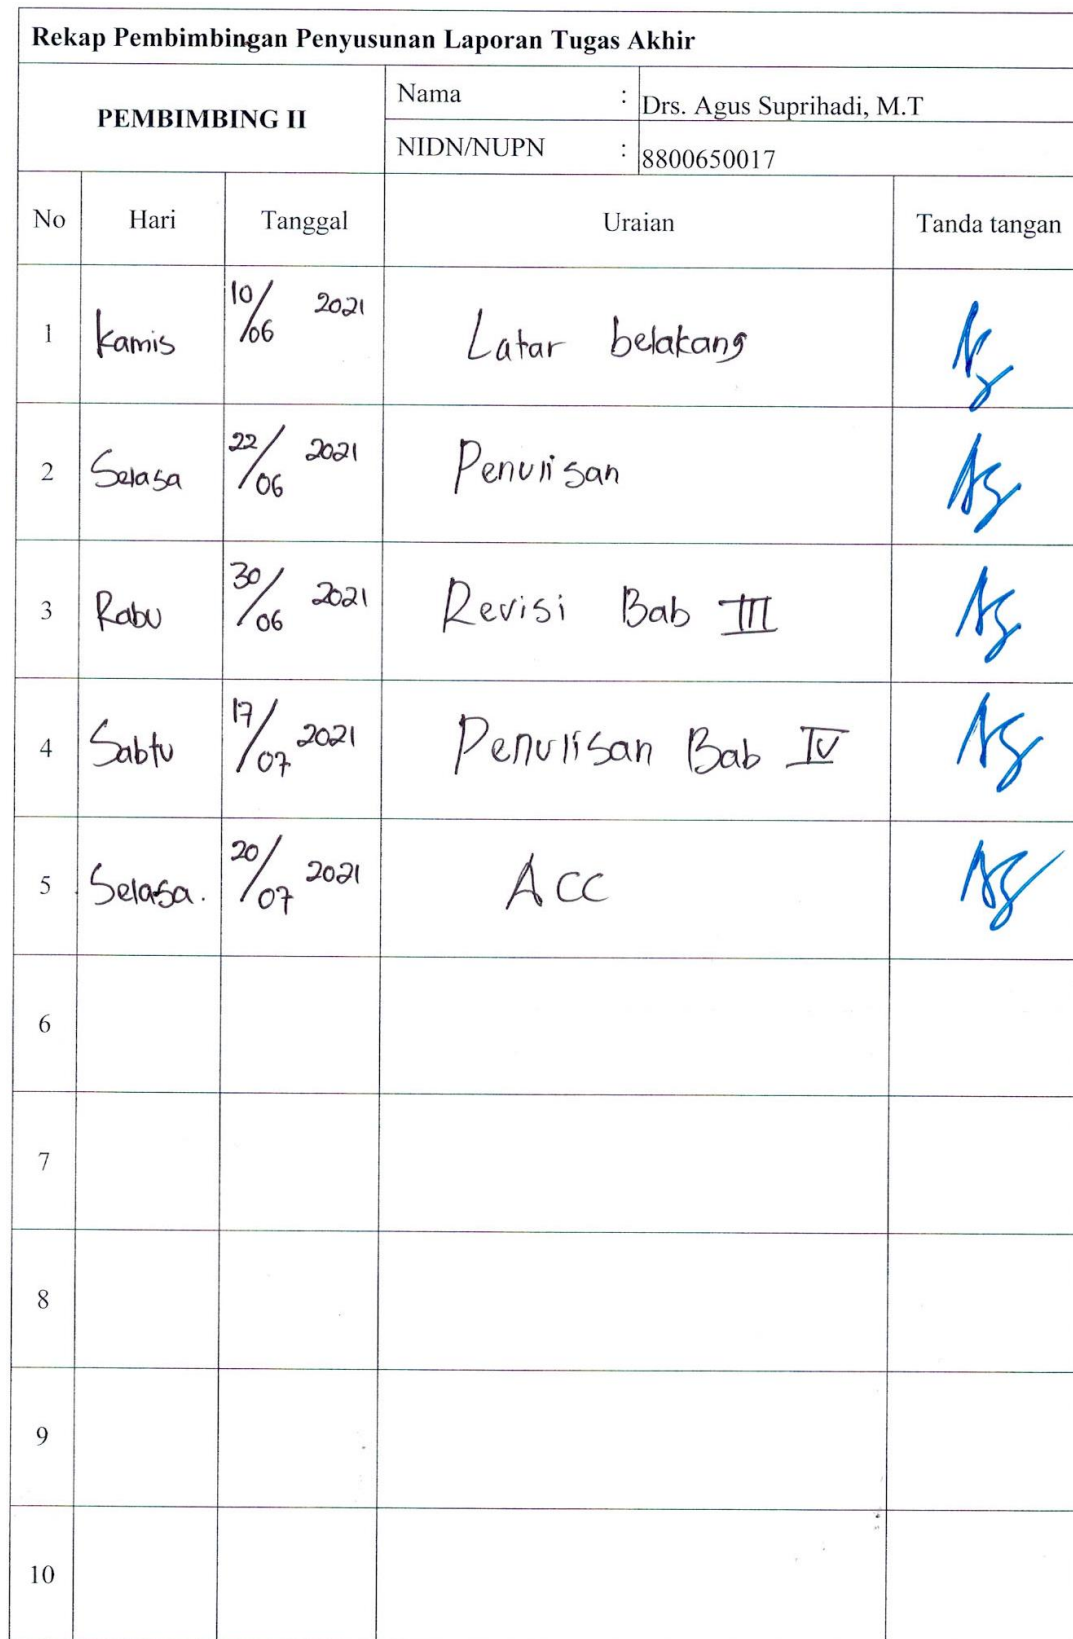 Rekap Pembimbingan Penyusunan Laporan Tugas Akhir
PEMBIMBING II
Nama : Drs. Agus Suprihadi, M.T
NIDN/NUPN : 8800650017
No Hari Tanggal Uraian Tanda tangan
1 Kamis 10/06 2021 Latar belakang
2 Selasa 22/06 2021 Penulisan
3 Rabu 30/06 2021 Revisi Bab III
4 Sabtu 17/07 2021 Penulisan Bab IV
5 Selasa. 20/07 2021 ACC
6
7
8
9
10